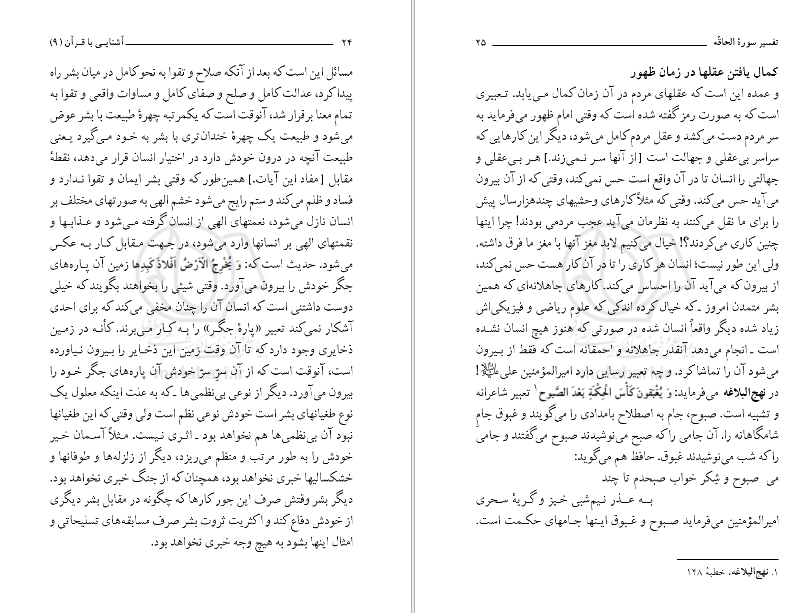 ۲۴ آشنایی با قرآن (۹)
مسائل این است که بعد از آنکه صلاح و تقوا به نحو کامل در میان بشر راه
پیدا کرد، عدالت کامل و صلح و صفای کامل و مساوات واقعی و تقوا به
تمام معنا برقرار شد، آنوقت است که یکمرتبه چهرهٔ طبیعت با بشر عوض
می‌شود و طبیعت یک چهرهٔ خندان‌تری با بشر به خود می‌گیرد یعنی
طبیعت آنچه در درون خودش دارد در اختیار انسان قرار می‌دهد، نقطهٔ
مقابل [مفاد این آیات.] همین‌طور که وقتی بشر ایمان و تقوا ندارد و
فساد و ظلم می‌کند و ستم رایج می‌شود خشم الهی به صورتهای مختلف بر
انسان نازل می‌شود، نعمتهای الهی از انسان گرفته می‌شود و عذابها و
نقمتهای الهی بر انسانها وارد می‌شود، در جهت مقابل کار به عکس
می‌شود. حدیث است که: وَ یُخْرِجُ الْاَرْضُ اَفْلاذَ کَبِدِها زمین آن پاره‌های
جگر خودش را بیرون می‌آورد. وقتی شیئی را بخواهند بگویند که خیلی
دوست داشتنی است که انسان آن را چنان مخفی می‌کند که برای احدی
آشکار نمی‌کند تعبیر «پارهٔ جگر» را به کار می‌برند. کأنه در زمین
ذخایری وجود دارد که تا آن وقت زمین این ذخایر را بیرون نیاورده
است، آنوقت است که از آن سرّ سرّ خودش آن پاره‌های جگر خود را
بیرون می‌آورد. دیگر از نوعی بی‌نظمی‌ها ـ که به علت اینکه معلول یک
نوع طغیانهای بشر است خودش نوعی نظم است ولی وقتی که این طغیانها
نبود آن بی‌نظمی‌ها هم نخواهد بود ـ اثری نیست. مثلاً آسمان خیر
خودش را به طور مرتب و منظم می‌ریزد، دیگر از زلزله‌ها و طوفانها و
خشکسالیها خبری نخواهد بود، همچنان‌که از جنگ خبری نخواهد بود.
دیگر بشر وقتش صرف این جور کارها که چگونه در مقابل بشر دیگری
از خودش دفاع کند و اکثریت ثروت بشر صرف مسابقه‌های تسلیحاتی و
امثال اینها بشود به هیچ وجه خبری نخواهد بود.
تفسیر سورهٔ الحاقّه ۲۵
کمال یافتن عقلها در زمان ظهور
و عمده این است که عقلهای مردم در آن زمان کمال می‌یابد. تعبیری
است که به صورت رمز گفته شده است که وقتی امام ظهور می‌فرماید به
سر مردم دست می‌کشد و عقل مردم کامل می‌شود، دیگر این کارهایی که
سراسر بی‌عقلی و جهالت است [از آنها سر نمی‌زند.] هر بی‌عقلی و
جهالتی را انسان تا در آن واقع است حس نمی‌کند، وقتی که از آن بیرون
می‌آید حس می‌کند. وقتی که مثلاً کارهای وحشیهای چندهزارسال پیش
را برای ما نقل می‌کنند به نظرمان می‌آید عجب مردمی بودند! چرا اینها
چنین کاری می‌کردند؟! خیال می‌کنیم لابد مغز آنها با مغز ما فرق داشته.
ولی این طور نیست؛ انسان هر کاری را تا در آن کار هست حس نمی‌کند،
از بیرون که می‌آید آن را احساس می‌کند. کارهای جاهلانه‌ای که همین
بشر متمدن امروز ـ که خیال کرده اندکی که علوم ریاضی و فیزیکی‌اش
زیاد شده دیگر واقعاً انسان شده در صورتی که هنوز هیچ انسان نشده
است ـ انجام می‌دهد آنقدر جاهلانه و احمقانه است که فقط از بیرون
می‌شود آن را تماشا کرد. و چه تعبیر رسایی دارد امیرالمؤمنین علی علیه‌السلام!
در نهج‌البلاغه می‌فرماید: وَ یُغْبَقونَ کَأْسَ الْحِکْمَةِ بَعْدَ الصَّبوحِ ۱ تعبیر شاعرانه
و تشبیه است. صبوح، جام به اصطلاح بامدادی را می‌گویند و غبوق جامِ
شامگاهانه را. آن جامی را که صبح می‌نوشیدند صبوح می‌گفتند و جامی
را که شب می‌نوشیدند غبوق. حافظ هم می‌گوید:
می صبوح و شِکر خواب صبحدم تا چند
به عذر نیم‌شبی خیز و گریهٔ سحری
امیرالمؤمنین می‌فرماید صبوح و غبوق اینها جامهای حکمت است.
۱. نهج‌البلاغه، خطبهٔ ۱۴۸